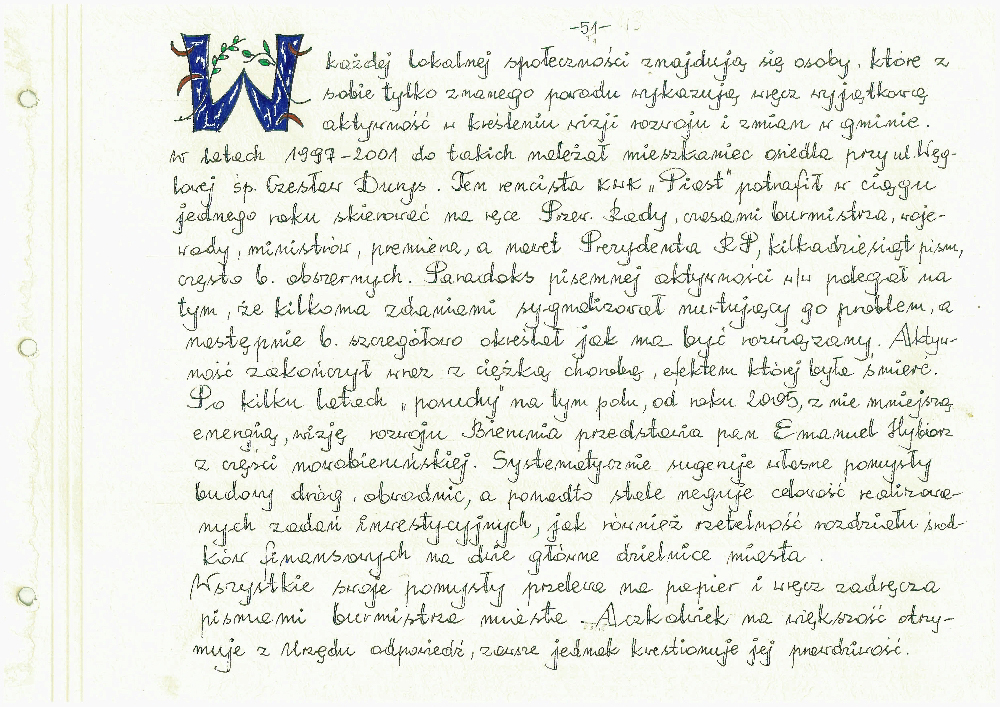 -51-
W każdej lokalnej społeczności znajdują się osoby, które z
sobie tylko znanego powodu wykazują wręcz wyjątkową
aktywność w kreśleniu wizji rozwoju i zmian w gminie.
W latach 1997-2001 do takich należał mieszkaniec osiedla przy ul. Węg-
lowej śp. Czesław Dunys. Ten rencista KWK "Piast" potrafił w ciągu
jednego roku skierować na ręce Przew. Rady, czasami burmistrza, woje-
wody, ministrów, premiera, a nawet Prezydenta RP, kilkadziesiąt pism,
często b. obszernych. Paradoks pisemnej aktywności w/w polegał na
tym, że kilkoma zdaniami sygnalizował nurtujący go problem, a
następnie b. szczegółowo określał jak ma być rozwiązany. Aktyw-
ność zakończył wraz z ciężką chorobą, efektem której była śmierć.
Po kilku latach "posuchy" na tym polu, od roku 2005, z nie mniejszą
energią, wizję rozwoju Bierunia przedstawia pan Emanuel Hybiorz
z części nowobieruńskiej. Systematycznie sugeruje własne pomysły
budowy dróg, obwodnic, a ponadto stale neguje celowość realizowa-
nych zadań inwestycyjnych, jak również rzetelność rozdziału środ-
ków finansowych na dwie główne dzielnice miasta.
Wszystkie swoje pomysły przelewa na papier i wręcz zadręcza
pismami burmistrza miasta. Aczkolwiek na większość otrzy-
muje z Urzędu odpowiedź, zawsze jednak kwestionuje jej prawdziwość.